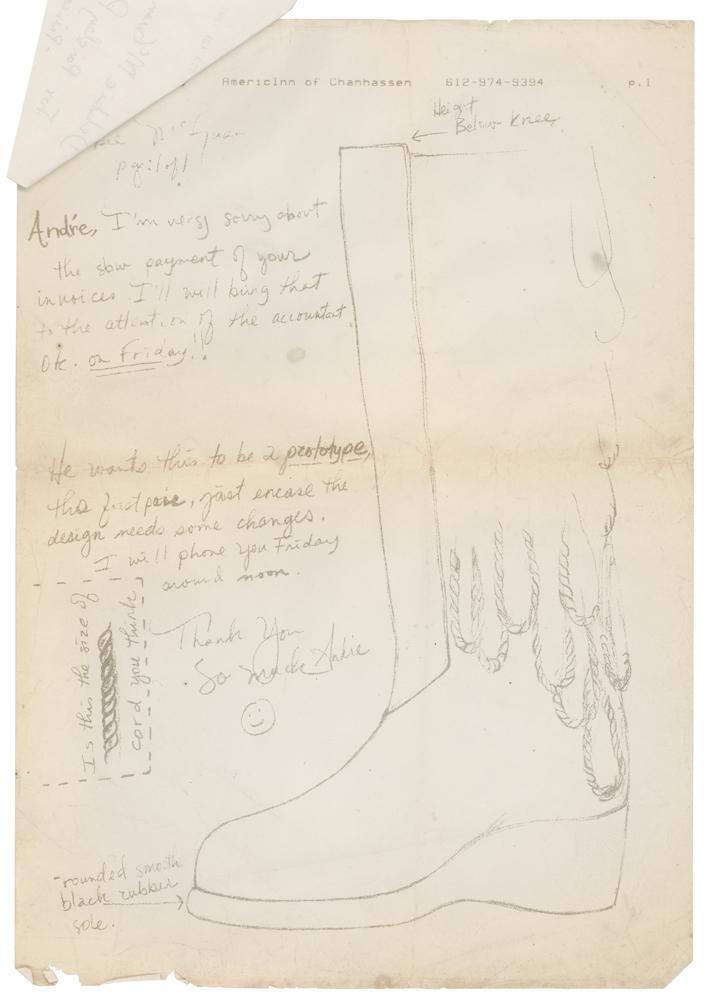 AmericInn of Chanhassen 612-974-9394 p.1
Height
Below Knee
pg: 1 of 1
André, I'm very sorry about
the slow payment of your
invoices. I'll will bring that
to the attention of the accountant
Ok. on Friday!!
He wants this to be a prototype,
this first pair, just encase the
design needs some changes.
I will phone you Friday
around noon.
Is this the size of
cord you think
Thank You
So Much
-rounded smooth
black rubber
sole.